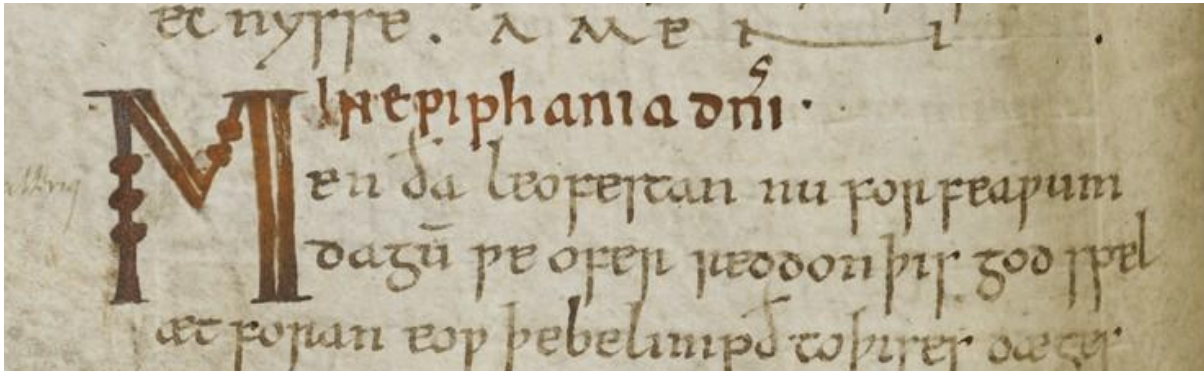 ecnysse . A M E N .
IN epiphania dñi·
Men ða leofestan nu for feaƿum
dagū ƿe ofer ræddon þis god spel
æt foran eoƿ þe belimpð to þises dæges